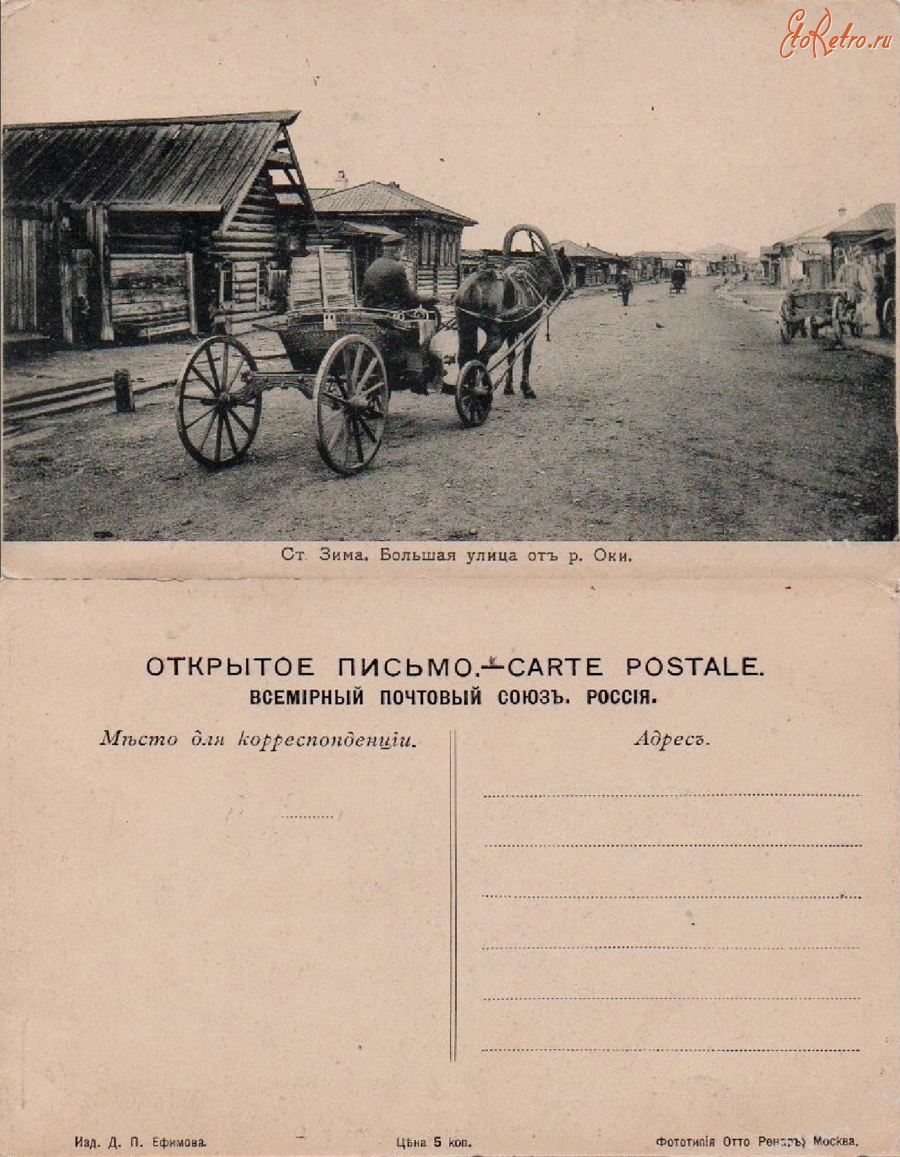 EtoRetro.ru
Ст. Зима. Большая улица отъ р. Оки.
ОТКРЫТОЕ ПИСЬМО.—CARTE POSTALE.
ВСЕМІРНЫЙ ПОЧТОВЫЙ СОЮЗЪ. РОССІЯ.
Мѣсто для корреспонденціи.
Адресъ.
Изд. Д. П. Ефимова.
Цѣна 5 коп.
Фототипія Отто Ренаръ, Москва.